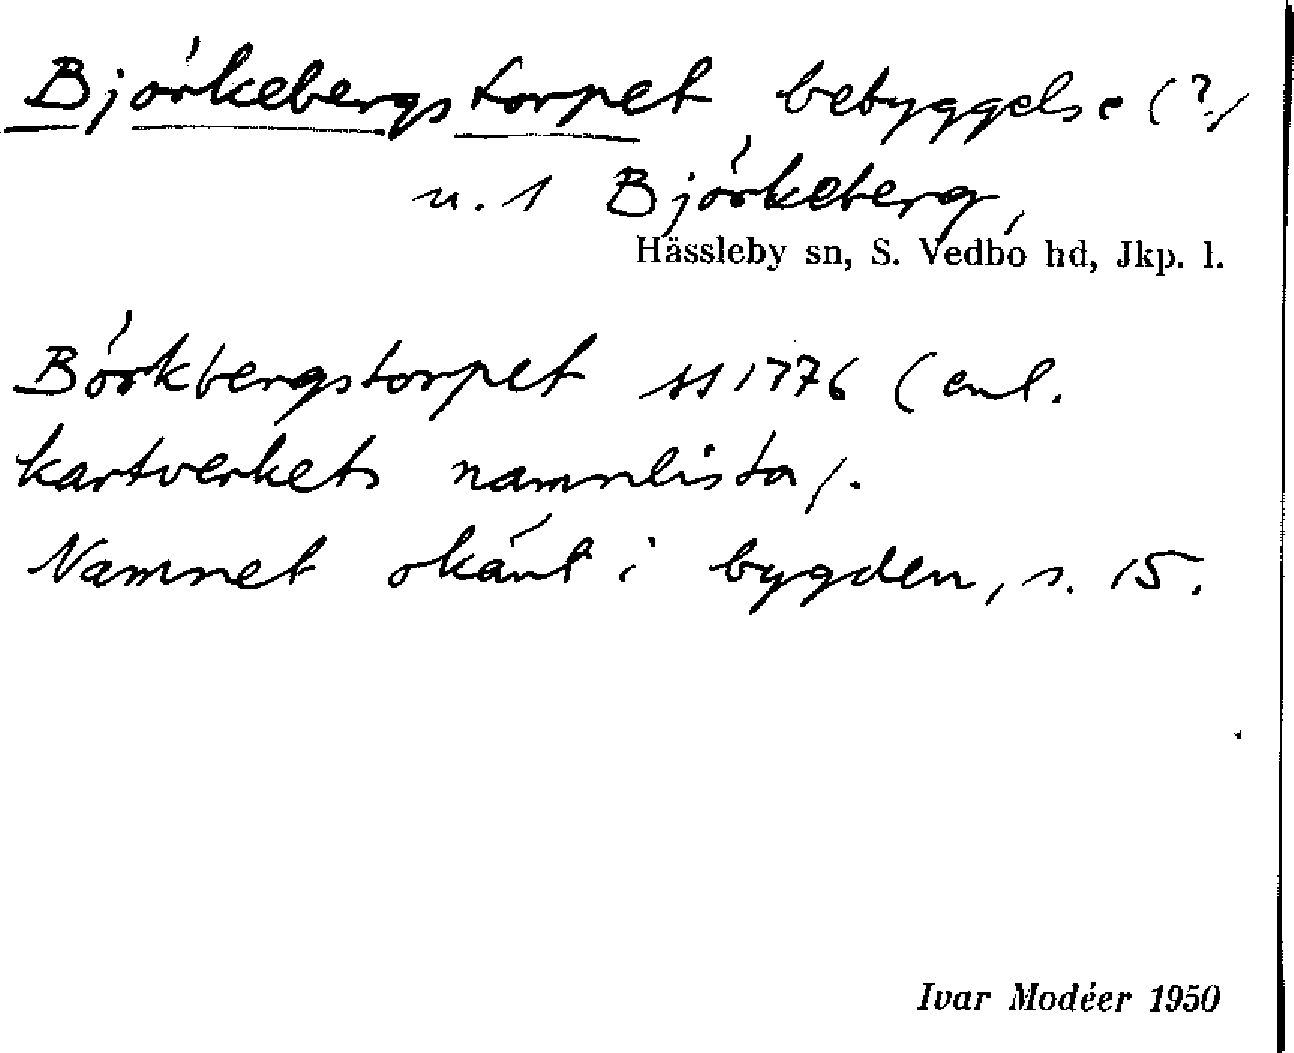 Björkebergstorpet bebyggelse (?)
u. 1 Björkeberg,
Hässleby sn, S. Vedbo hd, Jkp. l.
Börkbergstorpet SS 1776 (enl.
kartverkets namnlista).
Namnet okänt i bygden, s. 15.
Ivar Modéer 1950